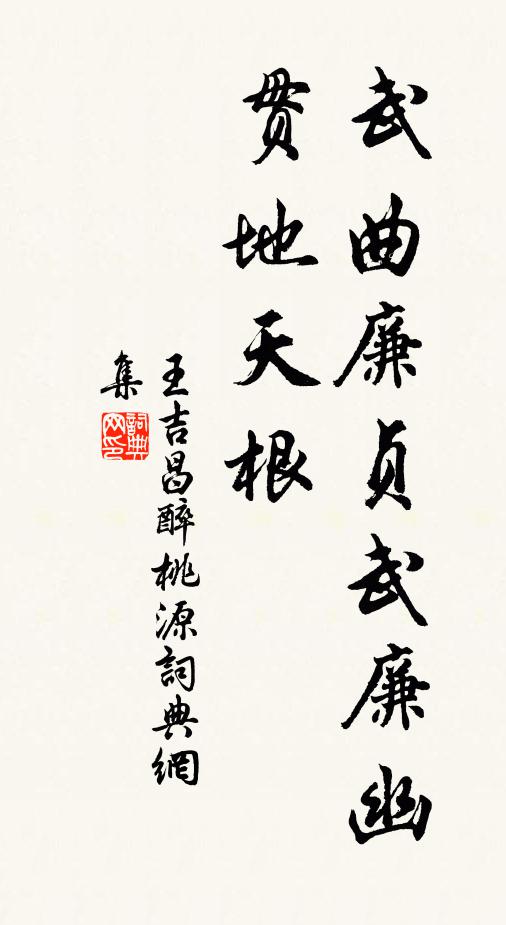 武曲廉貞武廉幽
貫地天根
王吉昌醉桃源詞典網
集
詞典
网印